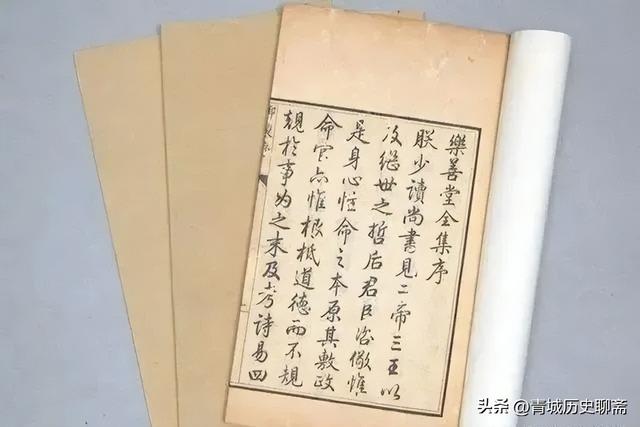 樂善堂全集序
朕少讀尚書見二帝三王以
及繼世之哲后君臣咨儆惟
是身心性命之本原其敷政
命官亦惟根柢道德而不規
規於事為之末及考詩易四
头条 @青城历史聊斋